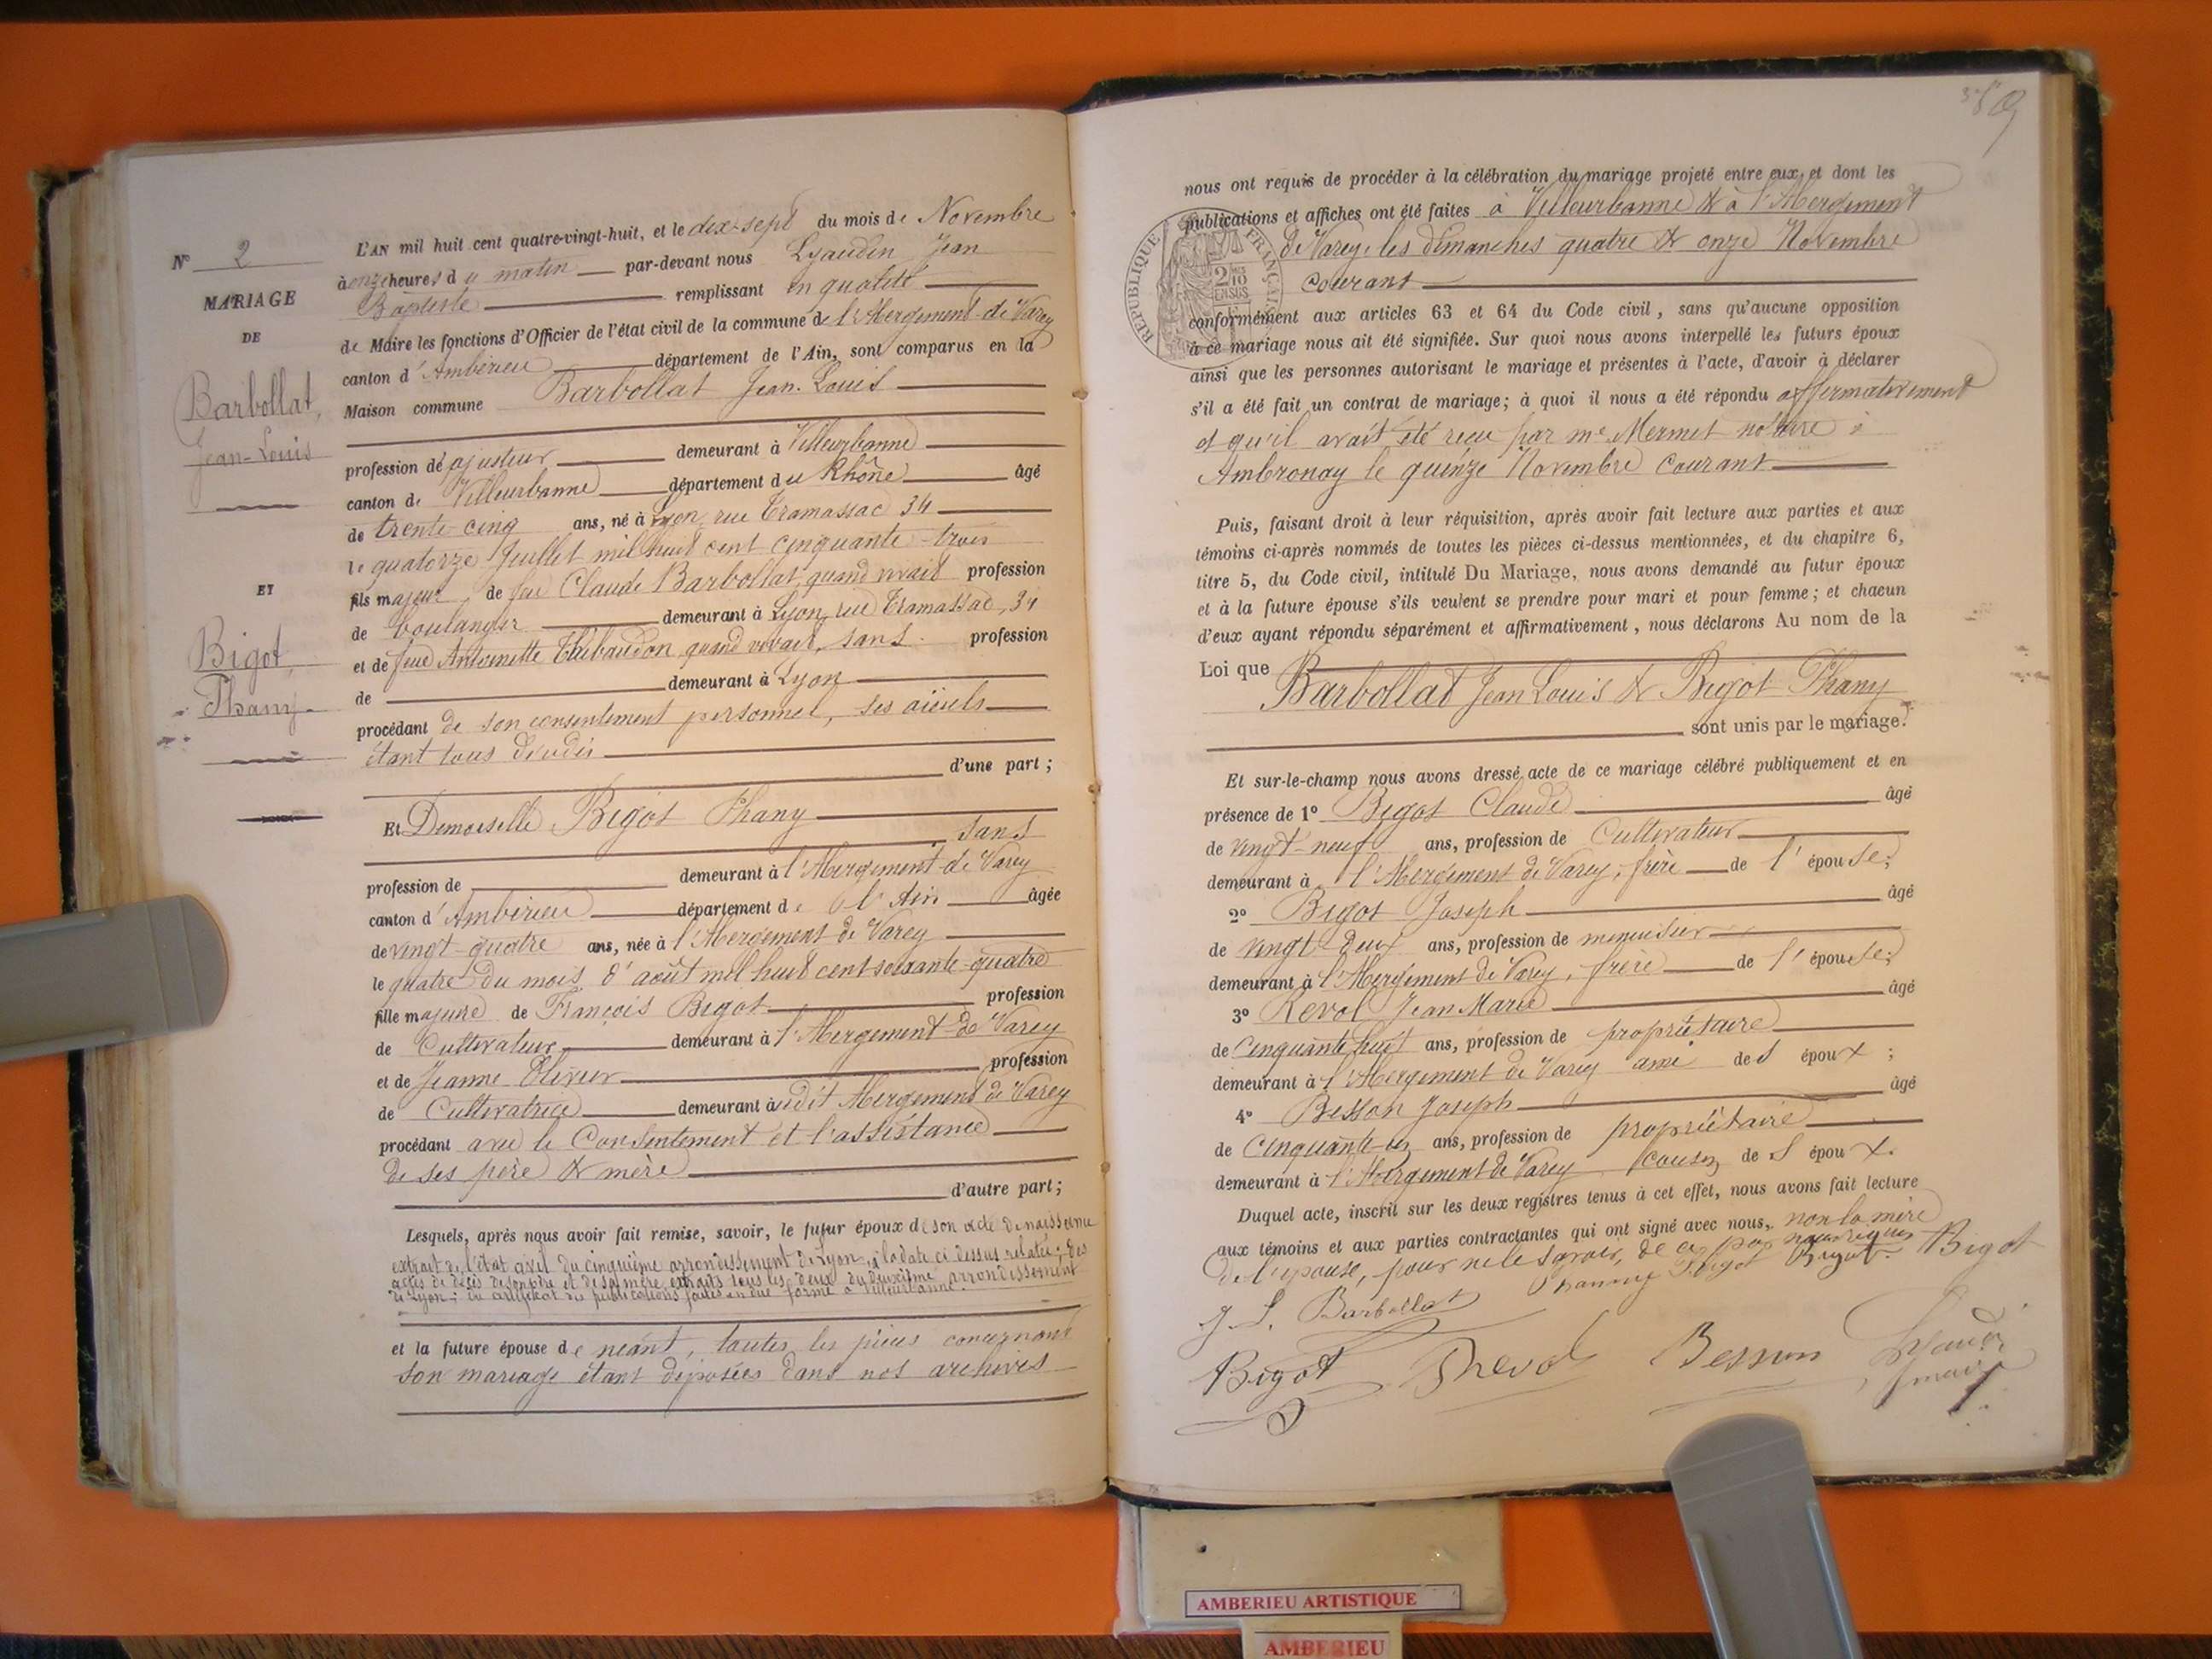 N° 2
MARIAGE
DE
Barbollat,
Jean-Louis
ET
Bigot,
Phany
L'AN mil huit cent quatre-vingt-huit, et le dix-sept du mois de Novembre
à onze heures du matin par-devant nous Lyaudin Jean
Baptiste remplissant en qualité
de Maire les fonctions d'Officier de l'état civil de la commune de l'Abergement-de-Varey
canton d'Ambérieu département de l'Ain, sont comparus en la
Maison commune Barbollat Jean-Louis
profession de ajusteur demeurant à Villeurbanne
canton de Villeurbanne département du Rhône âgé
de trente-cinq ans, né à Lyon, rue Tramassac 34
le quatorze Juillet mil huit cent cinquante-trois
fils majeur de feu Claude Barbollat, quand vivait profession
de boulanger demeurant à Lyon, rue Tramassac, 34
et de feue Antoinette Thibaudon quand vivait, sans profession
de demeurant à Lyon
procédant de son consentement personnel, ses aïeuls
étant tous décédés
d'une part;
Et Demoiselle Bigot Phany
sans
profession de demeurant à l'Abergement-de-Varey
canton d'Ambérieu département de l'Ain âgée
de vingt-quatre ans, née à l'Abergement de Varey
le quatre du mois d'août mil huit cent soixante-quatre
fille majeure de François Bigot profession
de Cultivateur demeurant à l'Abergement-de-Varey
et de Jeanne Olivier profession
de Cultivatrice demeurant à udit Abergement de Varey
procédant avec le Consentement et l'assistance
de ses père & mère
d'autre part;
Lesquels, après nous avoir fait remise, savoir, le futur époux de son acte de naissance
extrait de l'état civil du cinquième arrondissement de Lyon, à la date ci-dessus relatée; des
actes de décès de son père et de sa mère extraits tous les deux du deuxième arrondissement
de Lyon; du certificat des publications faites en due forme à Villeurbanne.
et la future épouse de néant, toutes les pièces concernant
son mariage étant déposées dans nos archives
nous ont requis de procéder à la célébration du mariage projeté entre eux, et dont les
publications et affiches ont été faites à Villeurbanne & à l'Abergement
de Varey, les dimanches quatre & onze Novembre
courant
RÉPUBLIQUE FRANÇAISE
conformément aux articles 63 et 64 du Code civil, sans qu'aucune opposition
à ce mariage nous ait été signifiée. Sur quoi nous avons interpellé les futurs époux
ainsi que les personnes autorisant le mariage et présentes à l'acte, d'avoir à déclarer
s'il a été fait un contrat de mariage; à quoi il nous a été répondu affirmativement
et qu'il avait été reçu par me Mermet notaire à
Ambronay le quinze Novembre courant
Puis, faisant droit à leur réquisition, après avoir fait lecture aux parties et aux
témoins ci-après nommés de toutes les pièces ci-dessus mentionnées, et du chapitre 6,
titre 5, du Code civil, intitulé Du Mariage, nous avons demandé au futur époux
et à la future épouse s'ils veulent se prendre pour mari et pour femme; et chacun
d'eux ayant répondu séparément et affirmativement, nous déclarons Au nom de la
Loi que Barbollat Jean Louis & Bigot Phany
sont unis par le mariage.
Et sur-le-champ nous avons dressé acte de ce mariage célébré publiquement et en
présence de 1° Bigot Claude âgé
de vingt-neuf ans, profession de Cultivateur
demeurant à l'Abergement de Varey, frère de l'épouse;
2° Bigot Joseph âgé
de vingt-deux ans, profession de menuisier
demeurant à l'Abergement de Varey, frère de l'épouse;
3° Revol Jean Marie âgé
de Cinquante huit ans, profession de propriétaire
demeurant à l'Abergement de Varey ami des époux;
4° Besson Joseph âgé
de Cinquante-un ans, profession de propriétaire
demeurant à l'Abergement de Varey cousin des époux.
Duquel acte, inscrit sur les deux registres tenus à cet effet, nous avons fait lecture
aux témoins et aux parties contractantes qui ont signé avec nous, non la mère
de l'épouse, pour ne le savoir, de ce par nous requise
Phanny Bigot Bigot Bigot
J. L. Barbollat
Bigot Revol Besson Lyaudin
maire
AMBERIEU ARTISTIQUE
AMBERIEU